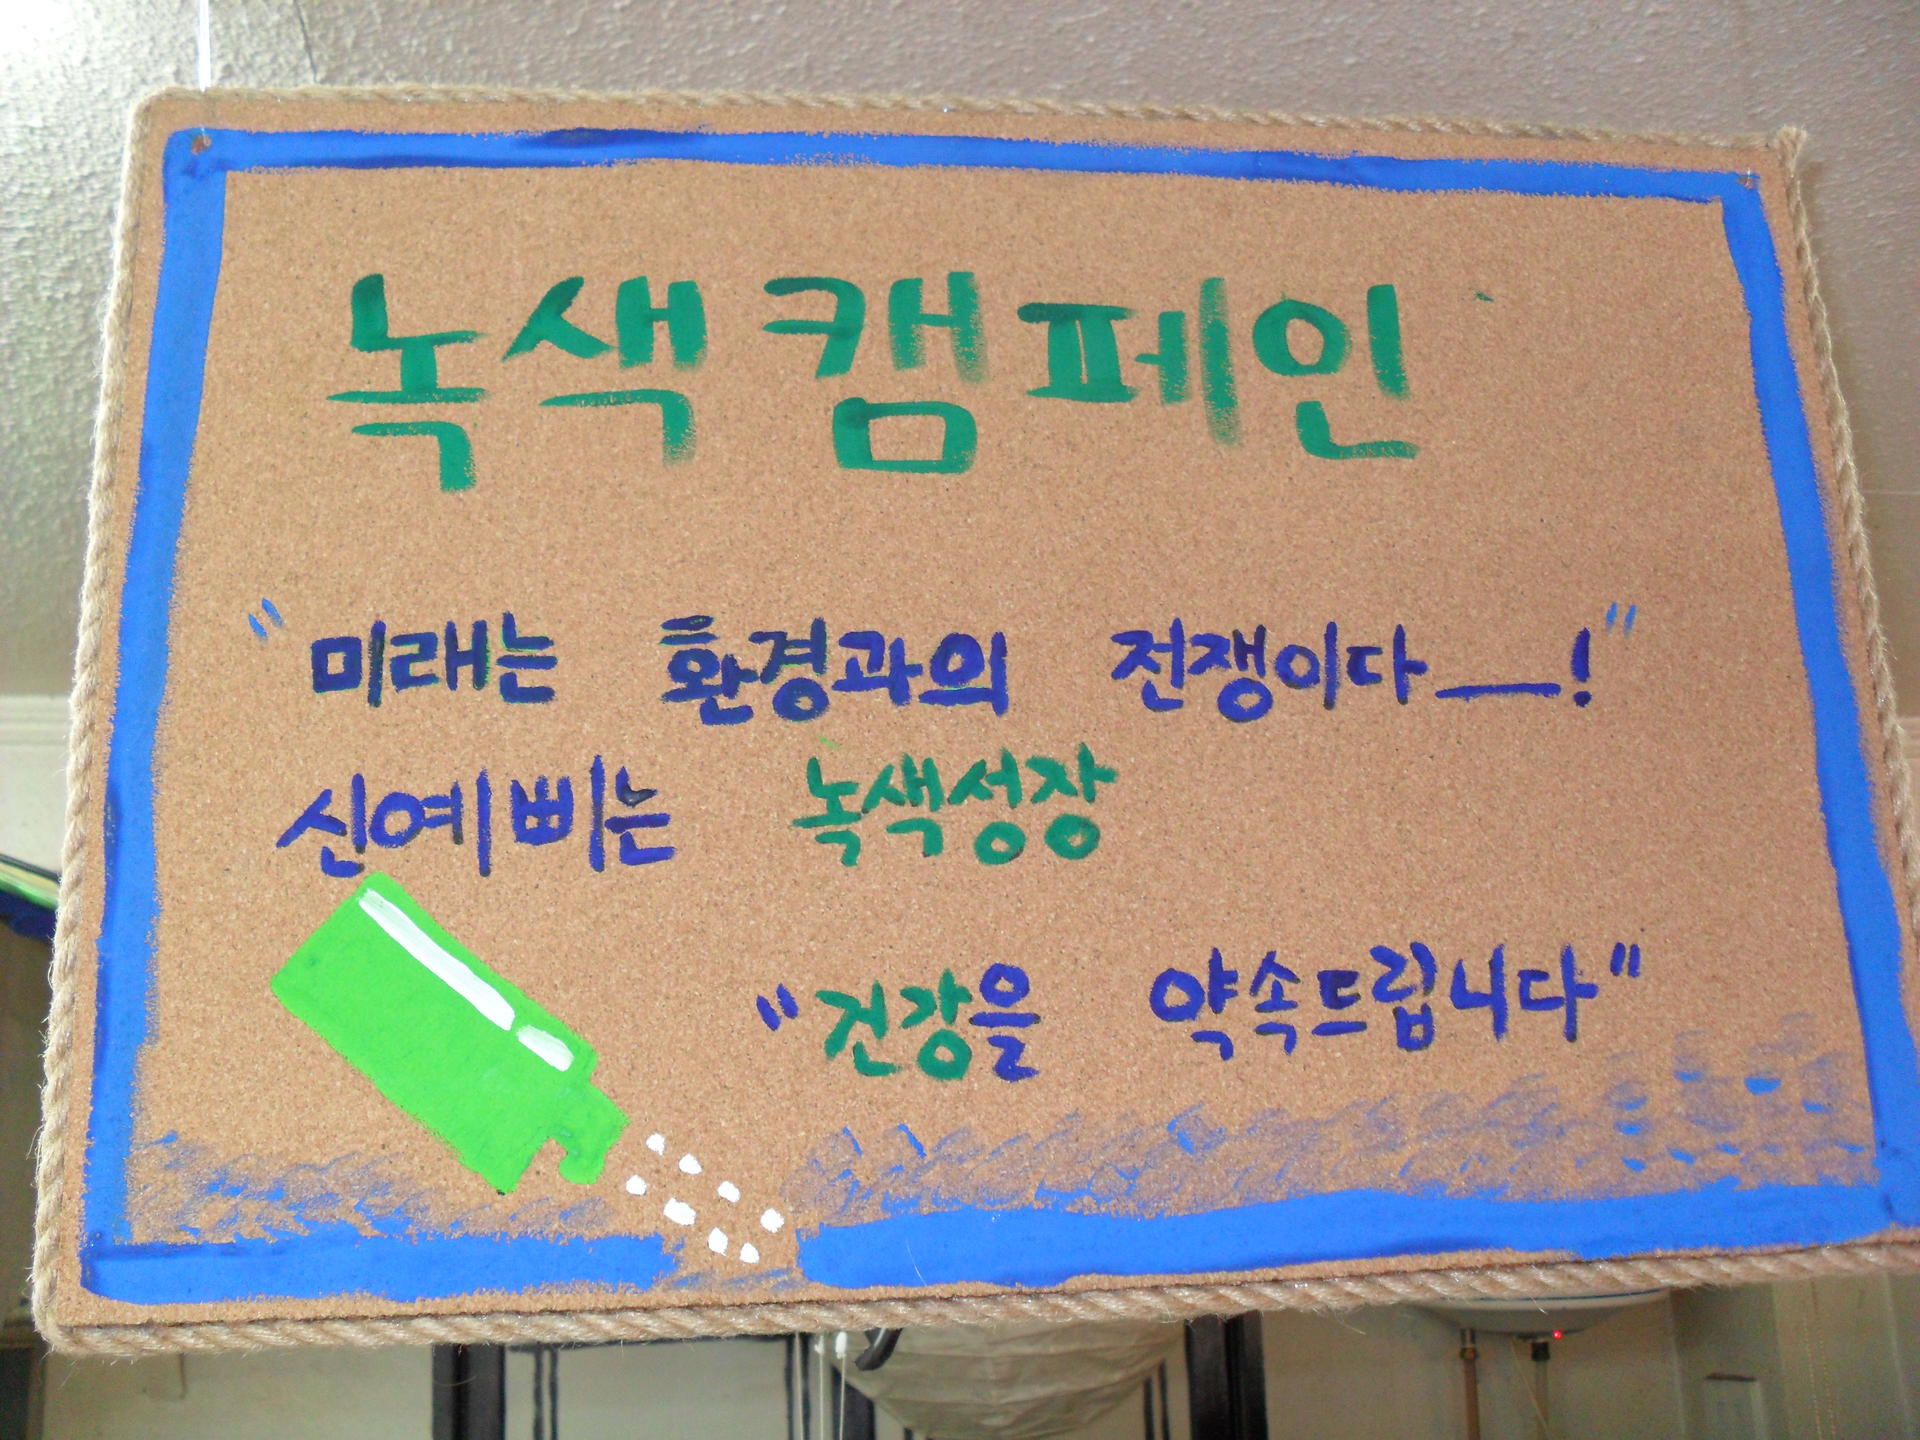 녹색 캠페인
"미래는 환경과의 전쟁이다—!"
신예삐는 녹색성장
"건강을 약속드립니다"